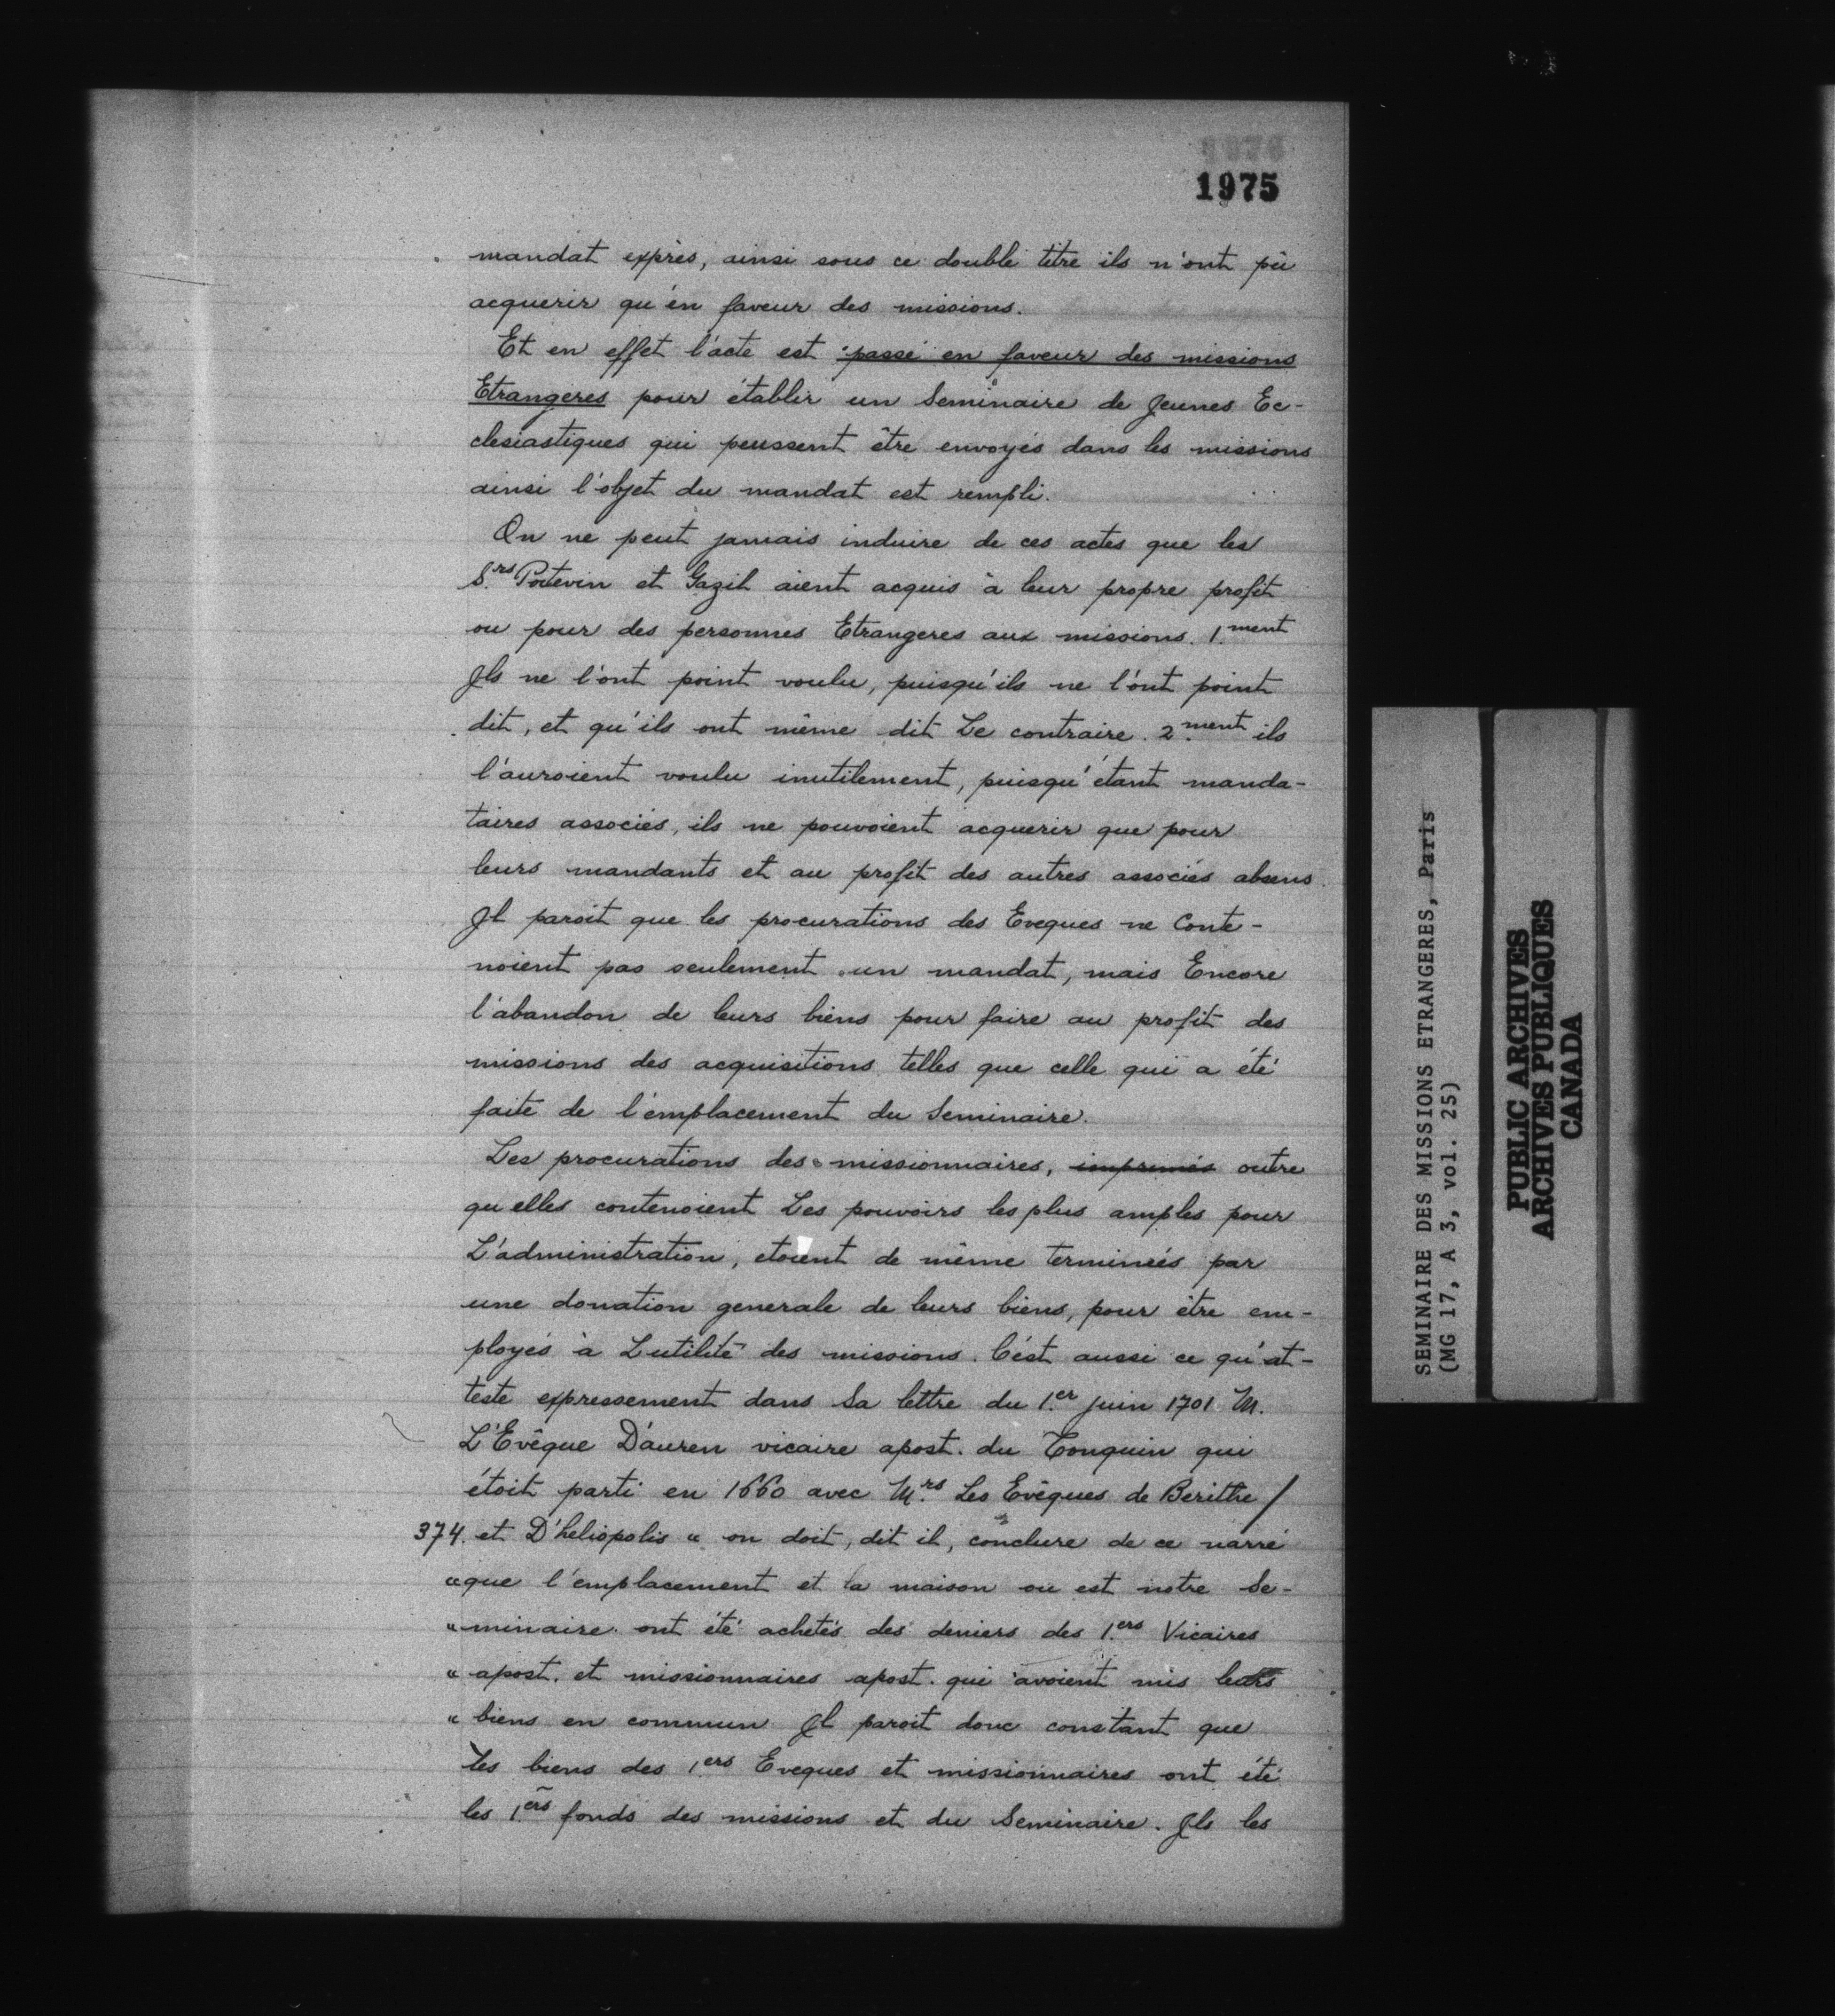 1975
mandat exprès, ainsi sous ce double titre ils n'ont pû
acquerir qu'en faveur des missions.
Et en effet l'acte est passé en faveur des missions
Etrangeres pour établir un Seminaire de Jeunes Ec-
clesiastiques qui peussent être envoyés dans les missions
ainsi l'objet du mandat est rempli.
On ne peut jamais induire de ces actes que les
S.rs Poitevin et Gazil aient acquis à leur propre profit
ou pour des personnes Etrangeres aux missions. 1.ment
Ils ne l'ont point voulu, puisqu'ils ne l'ont point
dit, et qu'ils ont même dit Le contraire. 2.ment ils
l'auroient voulu inutilement, puisqu'étant manda-
taires associés, ils ne pouvoient acquerir que pour
leurs mandants et au profit des autres associés absens.
Il paroit que les procurations des Eveques ne Conte-
noient pas seulement un mandat, mais Encore
l'abandon de leurs biens pour faire au profit des
missions des acquisitions telles que celle qui a été
faite de l'emplacement du Seminaire.
Les procurations des missionnaires, imprimés outre
qu'elles contenoient Les pouvoirs les plus amples pour
L'administration, etoient de même terminées par
une donation generale de leurs biens, pour être em-
ployés à L'utilité des missions. C'est aussi ce qu'at-
teste expressement dans Sa lettre du 1.er juin 1701 M.
L'Evêque D'auren vicaire apost. du Tonquin qui
étoit parti en 1660 avec M.rs Les Evêques de Berithe/
374. et D'heliopolis " on doit, dit il, conclure de ce narré
"que l'emplacement et la maison ou est notre Se-
"minaire ont été achetés des deniers des 1.ers Vicaires
" apost. et missionnaires apost. qui avoient mis leurs
" biens en commun Il paroit donc constant que
Les biens des 1.ers Eveques et missionnaires ont été
les 1.ers fonds des missions et du Seminaire. Ils les
SEMINAIRE DES MISSIONS ETRANGERES, Paris
(MG 17, A 3, vol. 25)
PUBLIC ARCHIVES
ARCHIVES PUBLIQUES
CANADA